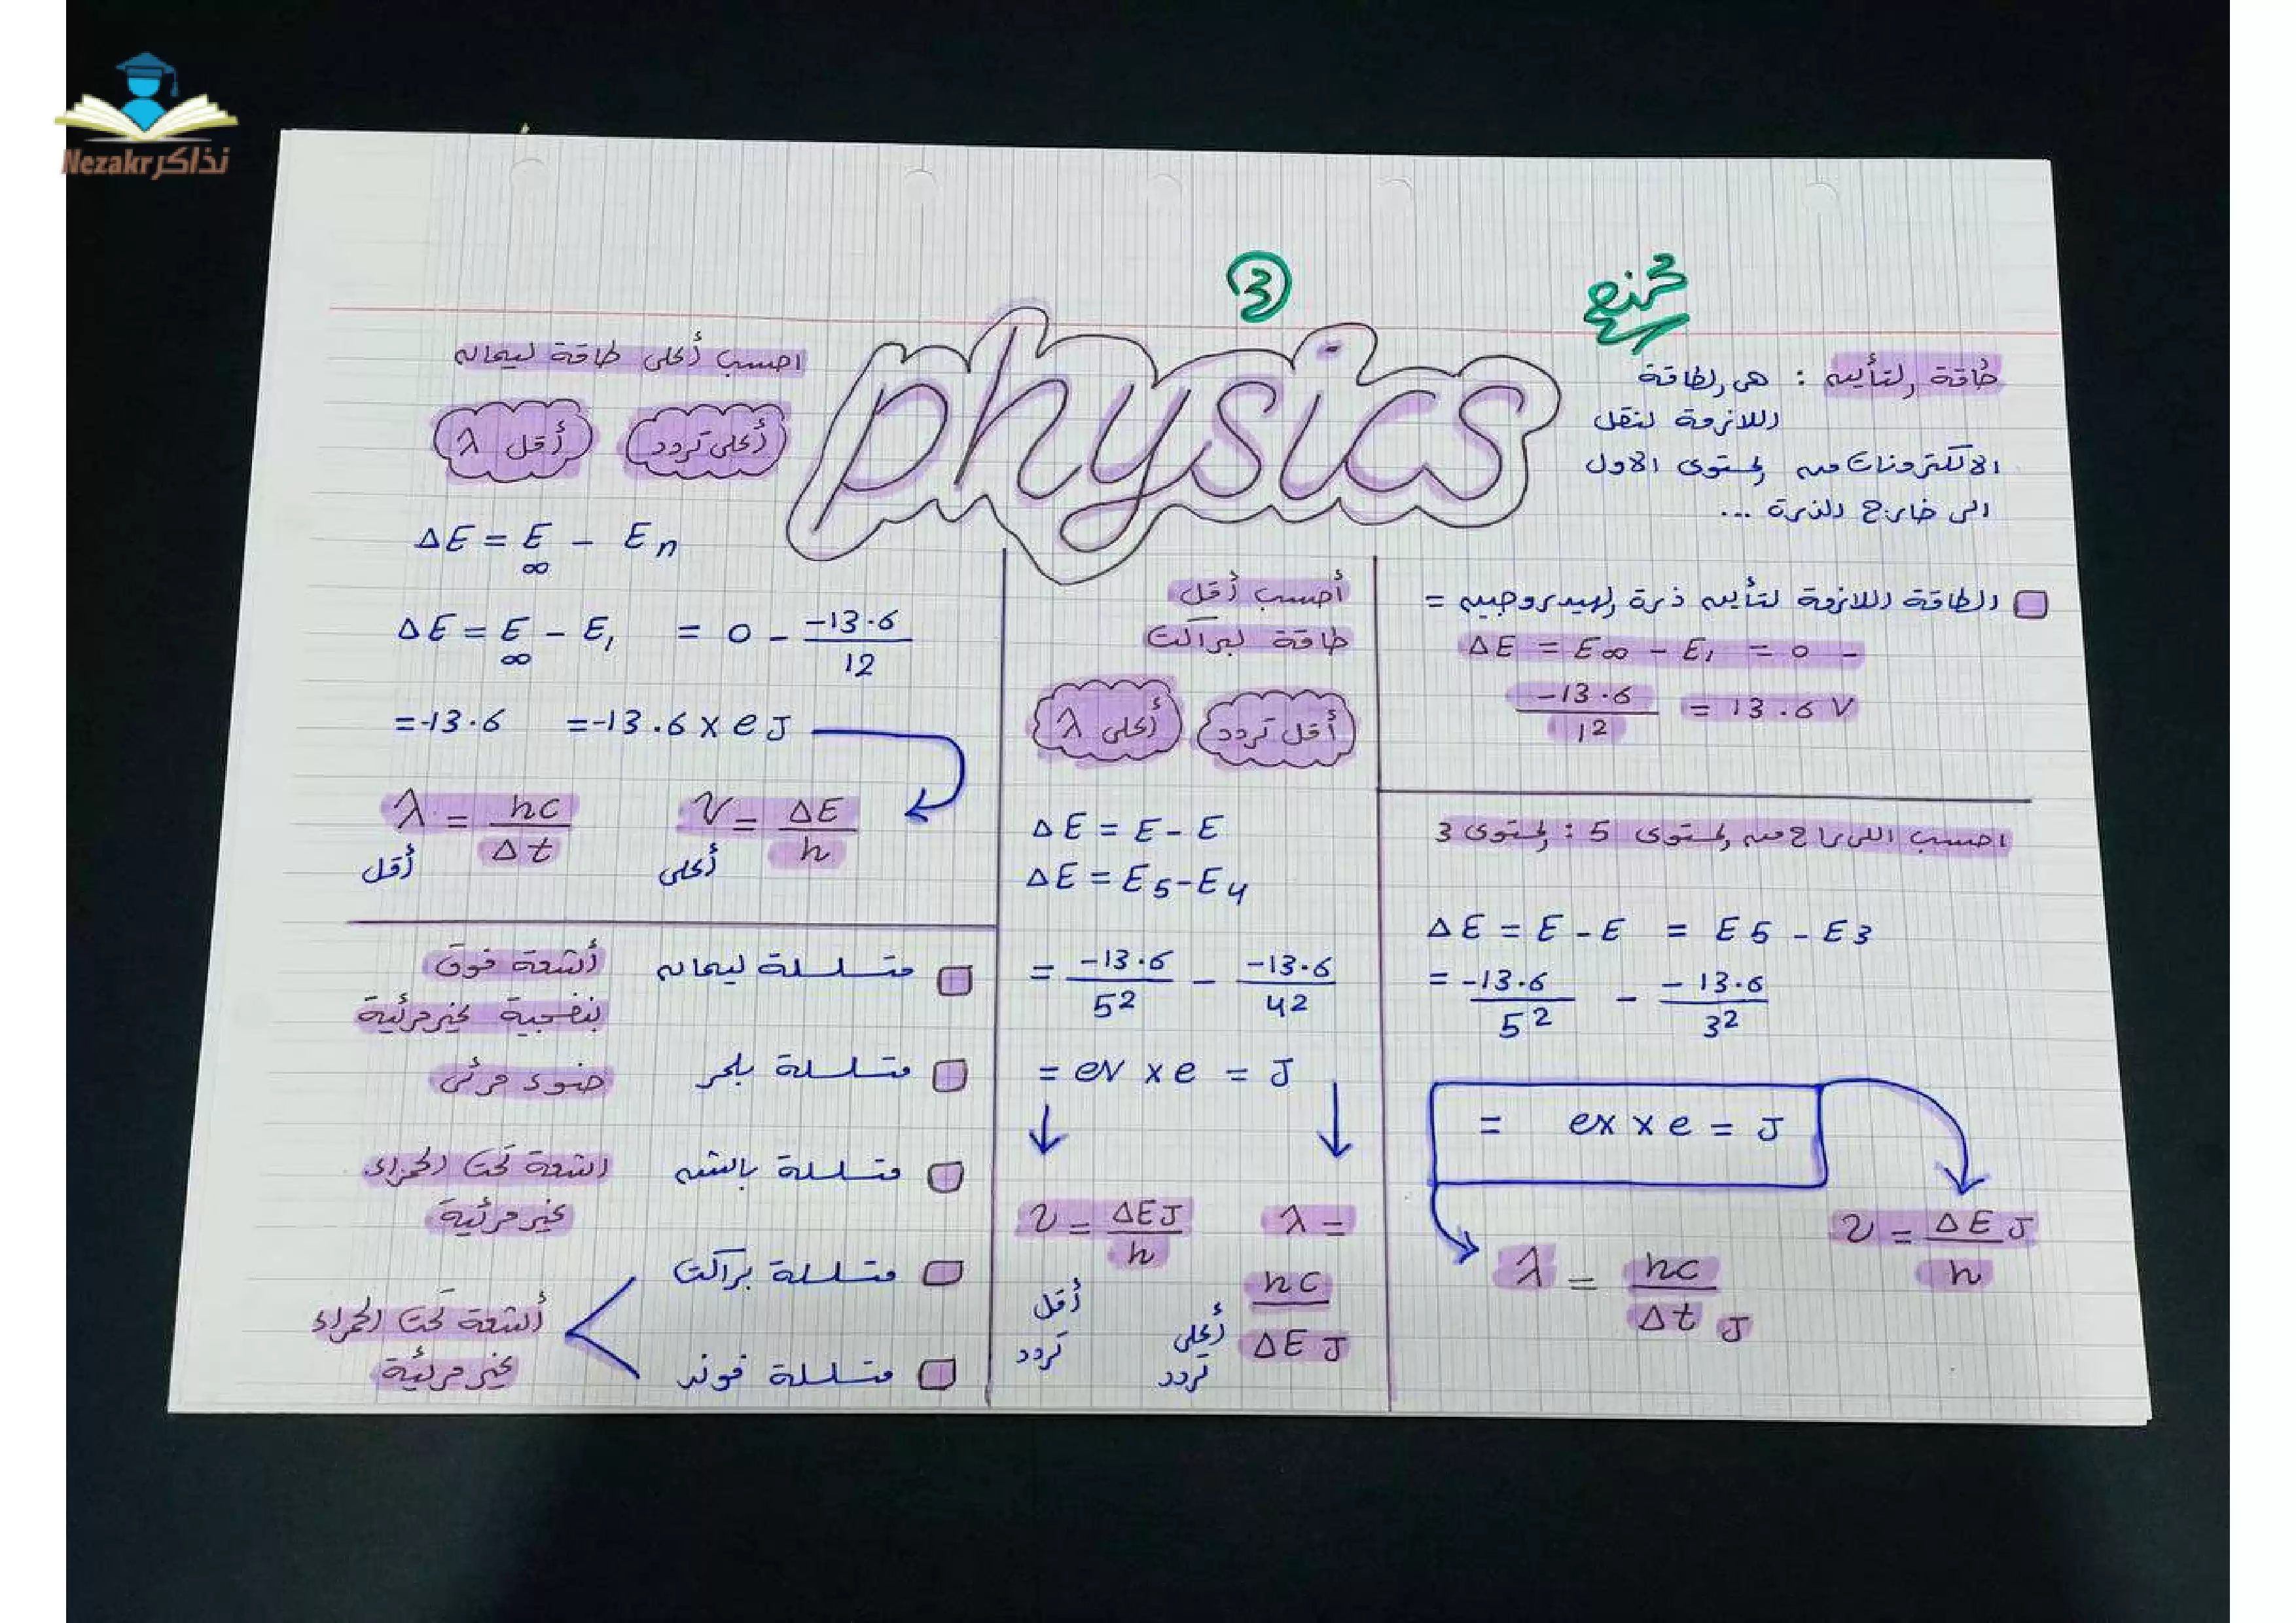 نذاكر Nezakr
3
physics
طاقة التأين : هى الطاقة
اللازمة لنقل
الالكترونات من المستوى الاول
الى خارج الذرة ...
الطاقة اللازمة لتأين ذرة الهيدروجين =
ΔE = E∞ - E₁ = 0 -
-13.6 / 12 = 13.6 V
احسب اللى راح من المستوى 5 : المستوى 3
ΔE = E - E = E5 - E3
= -13.6 / 5² - -13.6 / 3²
= ex x e = J
ν = ΔE J / h
λ = hc / Δt J
أحسب أقل
طاقة لبراكت
أقل تردد
أعلى λ
ΔE = E - E
ΔE = E5 - E4
= -13.6 / 5² - -13.6 / 42
= ev x e = J
ν = ΔEJ / h
أقل
تردد
λ =
hc / ΔE J
أعلى
تردد
احسب أعلى طاقة ليمان
أعلى تردد
أقل λ
ΔE = E∞ - En
ΔE = E∞ - E₁ = 0 - -13.6 / 12
=-13.6 =-13.6 x e J
ν = ΔE / h
أعلى
λ = hc / Δt
أقل
متسلسلة ليمان
أشعة فوق
بنفسجية غير مرئية
متسلسلة بلمر
ضوء مرئى
متسلسلة باشن
اشعة تحت الحمراء
غير مرئية
متسلسلة براكت
متسلسلة فوند
أشعة تحت الحمراء
غير مرئية